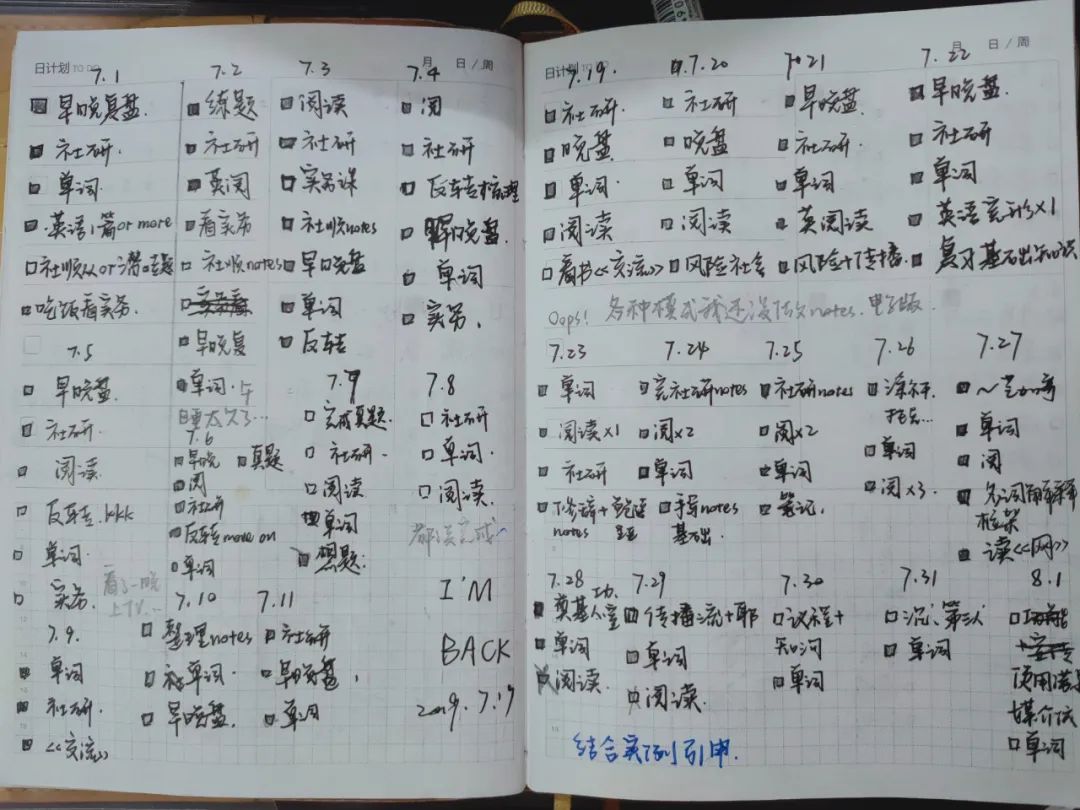 日计划 TO DO
月 日/周
7.1
早晚复盘.
社研.
单词.
英语1篇or more
社顺从or潜口题
吃饭看实务.
7.2
练题
社研
英阅
看实务
社顺notes
早晚复
单词.
睡太久了...
7.3
阅读
社研
实务课
社顺notes
早晚盘
单词
反转
7.4
阅
社研
反转梳理
晚盘.
单词
实务.
7.5
早晚盘.
社研.
阅读.
反转.kkk
单词.
实务.
看了一晚
上TV...
7.6
早晚
真题
阅
社研
反转move on
单词
7.9
完成真题.
社研.
阅读
单词
想题.
7.8
社研
单词.
阅读.
都没完成
7.9.
单词
社研.
《交流》
7.10
整理notes
单词.
早晚盘.
7.11
社研
早晚盘.
单词
I'M
BACK
2019.7.19
日计划 TO DO
月 日/周
7.19.
社研.
晚盘
单词.
阅读
看书《交流》
7.20
社研
晚盘
单词
阅读
风险社会
7.21
早晚盘
社研.
单词
英阅读
风险+传播.
7.22
早晚盘.
社研
单词
英语完形×1
复习基础知识
Oops! 各种模式我还没做notes.电子版.
7.23
单词
阅读×1
社研
notes
7.24
完社研notes
阅×2
单词
手写notes
基础.
7.25
社研notes
阅×2
单词
笔记.
7.26
单词
阅×3.
7.27
单词
阅
名词解释
框架
读《网》
7.28
奠基人
单词
阅读.
7.29
传播流+耶
单词
阅读.
7.30
议程+
知沟
单词
7.31
沉、第三人
单词
8.1
使用满足
媒介依
单词
结合实例引申.